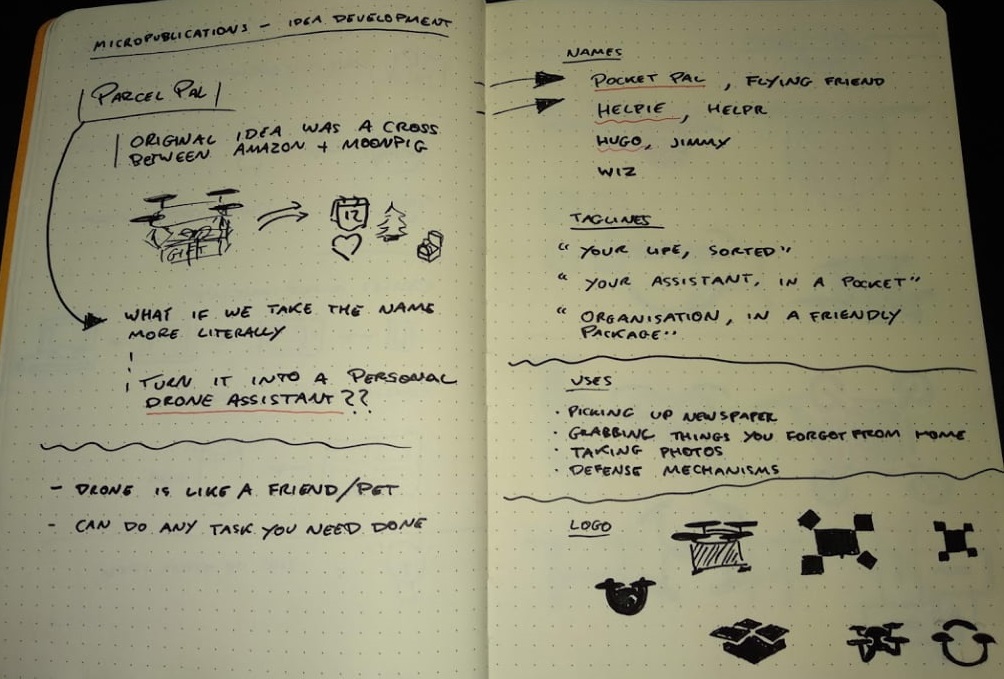 MICROPUBLICATIONS - IDEA DEVELOPMENT
PARCEL PAL
ORIGINAL IDEA WAS A CROSS
BETWEEN AMAZON + MOONPIG
GIFT
12
WHAT IF WE TAKE THE NAME
MORE LITERALLY
TURN IT INTO A PERSONAL
DRONE ASSISTANT??
- DRONE IS LIKE A FRIEND/PET
- CAN DO ANY TASK YOU NEED DONE
NAMES
POCKET PAL, FLYING FRIEND
HELPIE, HELPR
HUGO, JIMMY
WIZ
TAGLINES
"YOUR LIFE, SORTED"
"YOUR ASSISTANT, IN A POCKET"
"ORGANISATION, IN A FRIENDLY
PACKAGE"
USES
· PICKING UP NEWSPAPER
· GRABBING THINGS YOU FORGOT FROM HOME
· TAKING PHOTOS
· DEFENSE MECHANISMS
LOGO